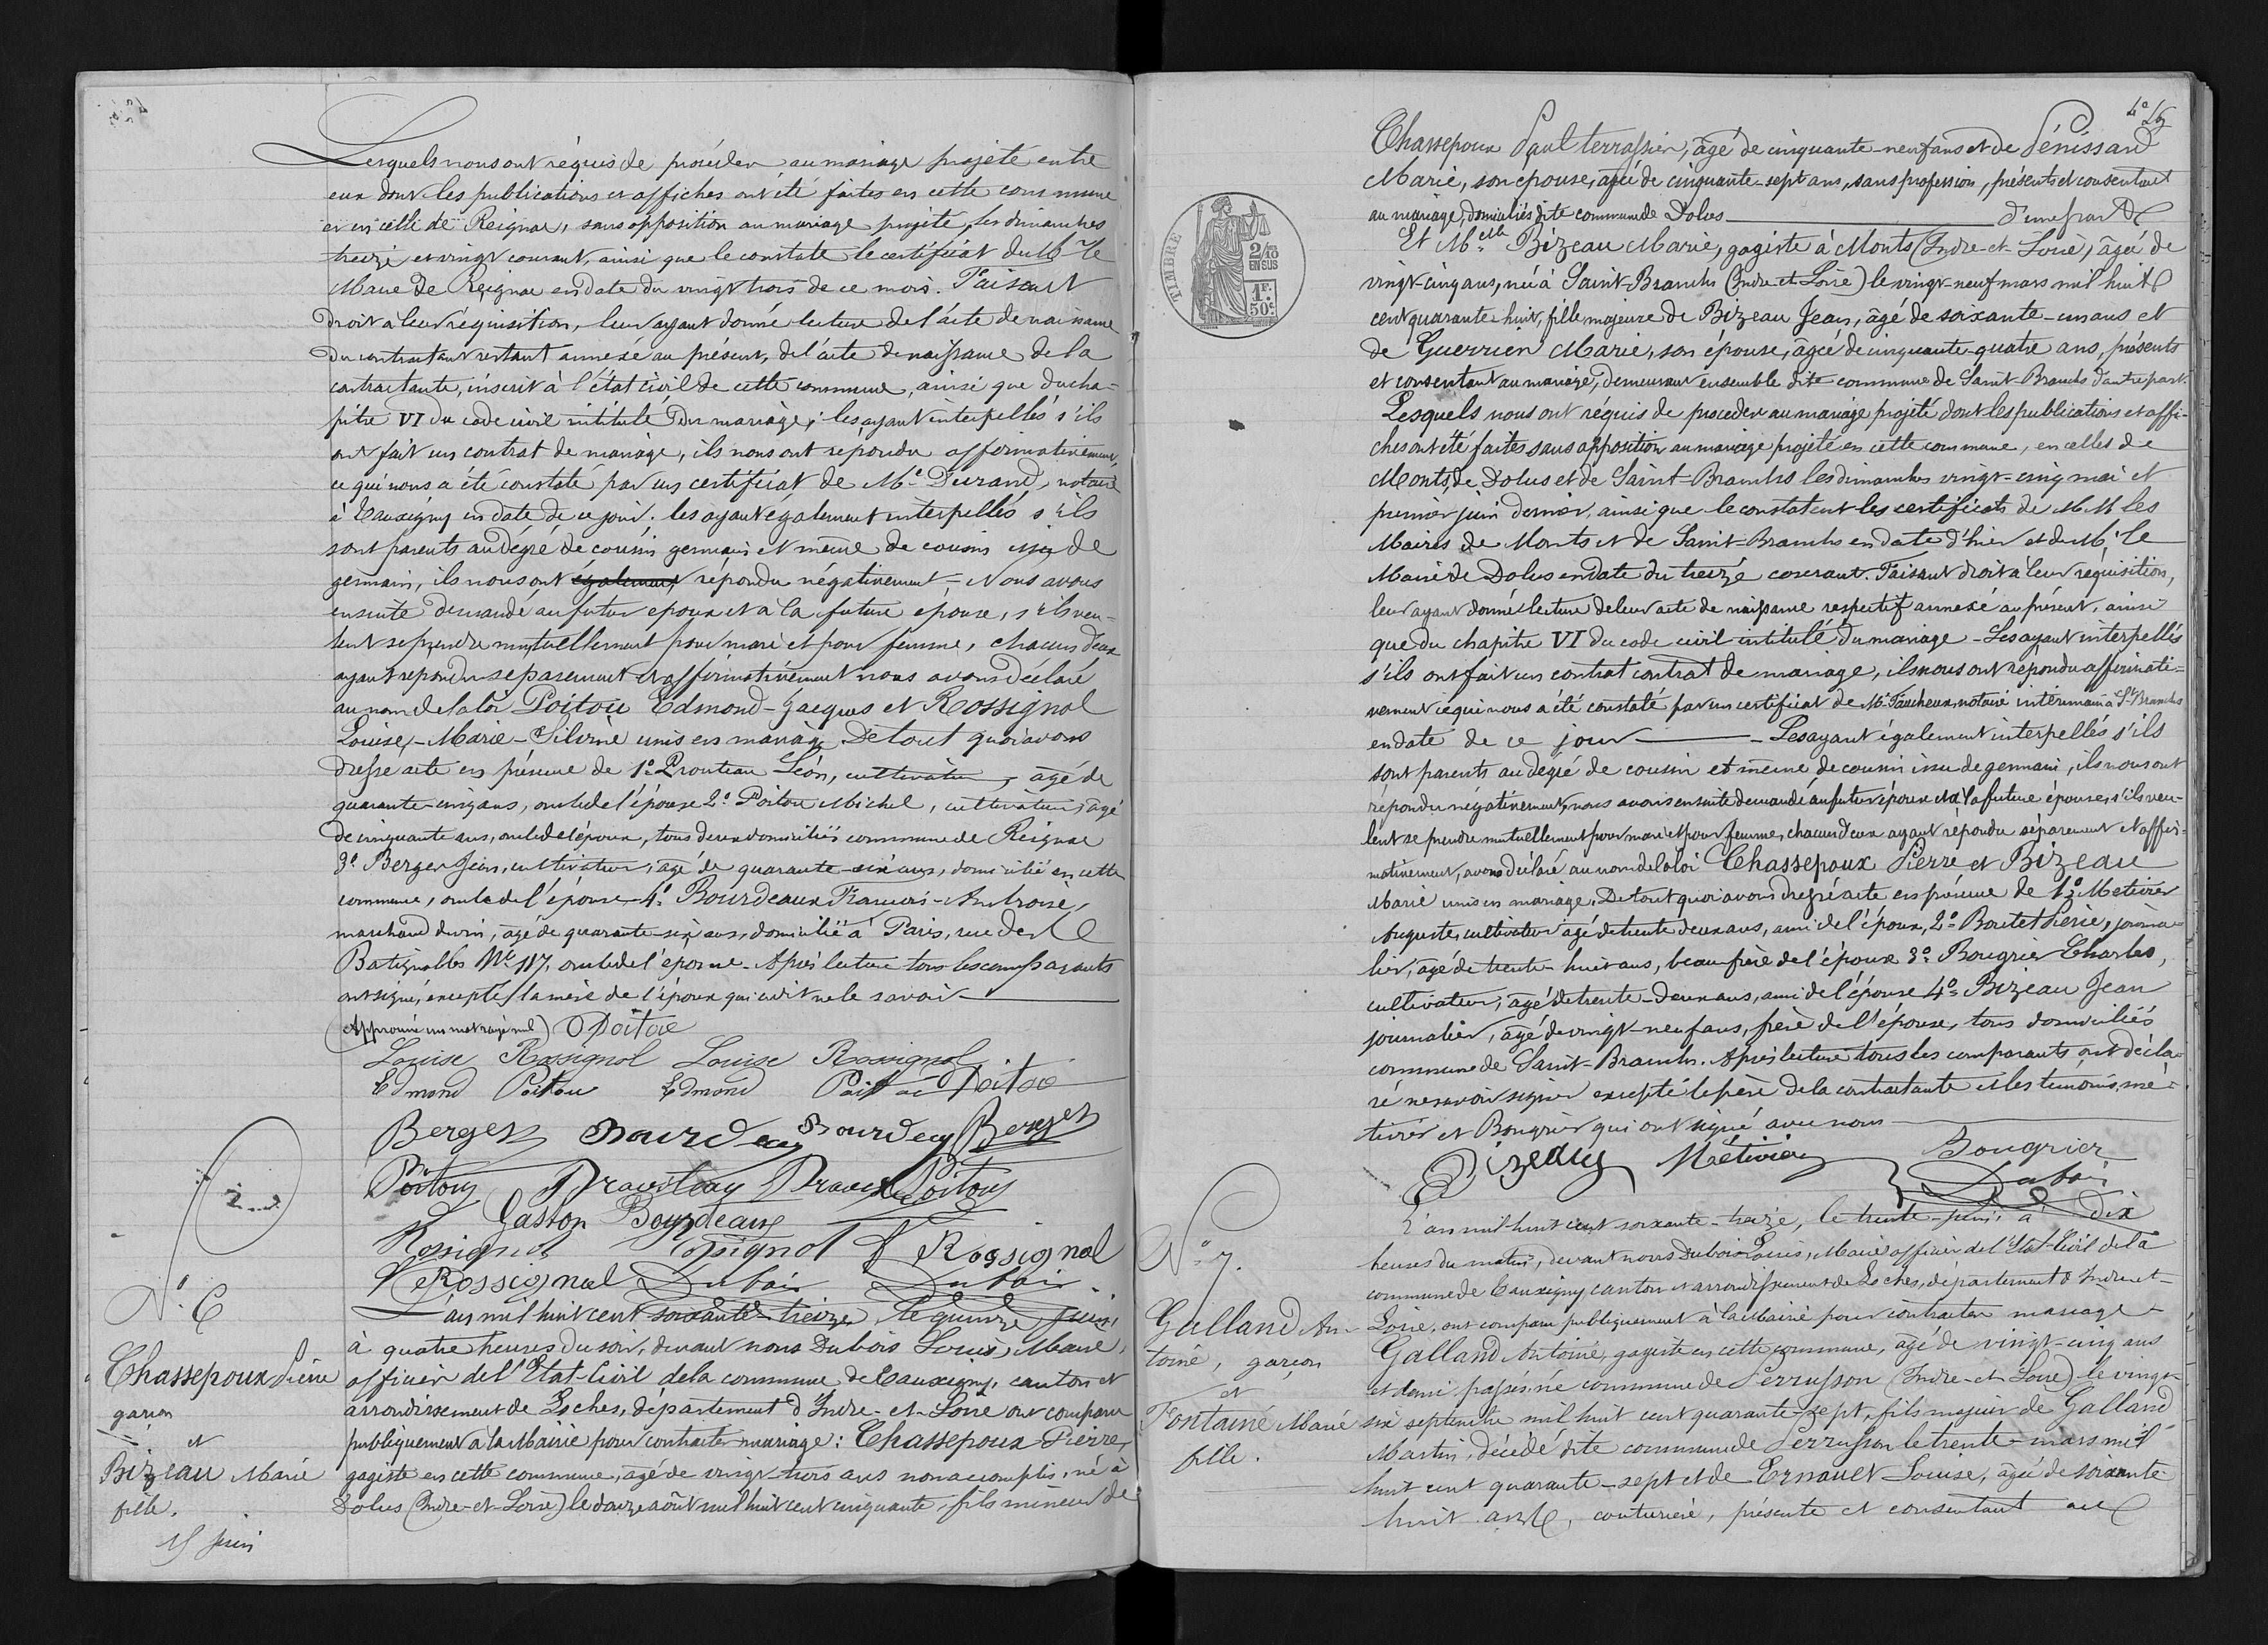 Lesquels nous ont réquis de procéder au mariage projeté entre
eux dont les publications et affiches ont été faites en cette commune
et en celle de Reignac, sans opposition au mariage projeté, les dimanches
treize et vingt courant, ainsi que le constate le certificat du Mr le
Maire de Reignac en date du vingt trois de ce mois. Faisant
droit à leur réquisition, leur ayant donné lecture de l'acte de naissance
du contractant restant annexé au présent, de l'acte de naissance de la
contractante, inscrit à l'état civil de cette commune, ainsi que du cha-
pitre VI du code civil intitulé du mariage; les ayant interpellés s'ils
ont fait un contrat de mariage, ils nous ont répondu affirmativement,
ce qui nous a été constaté par un certificat de Me Durand, notaire
à Tauxigny en date de ce jour. les ayant également interpellés s'ils
sont parents au dégré de cousin germain et même de cousin issu de
germain, ils nous ont également répondu négativement - Nous avons
ensuite demandé au futur epoux et à la future épouse, s'ils veu-
lent se prendre mutuellement pour mari et pour femme, chacun d'eux
ayant repondu separement et affirmativement nous avons déclaré
au nom de la loi Poitou Edmond-Jacques et Rossignol
Louise-Marie-Silvine unis en mariage. De tout quoi avons
dressé acte en présence de 1° Prouteau Léon, cultivateur, âgé de
quarante-cinq ans, oncle de l'épouse 2° Poitou Michel, cultivateur, âgé
de cinquante ans, oncle de l'époux, tous deux domiciliés commune de Reignac
3° Berger Jean, cultivateur, âgé de quarante-six ans, domicilié en cette
commune, oncle de l'épouse 4° Bourdeaux François-Ambroise,
marchand de vin, âgé de quarante-six ans, domicilié à Paris, rue des
Batignolles No 117, oncle de l'épouse - Après lecture tous les comparants
ont signé, excepté la mère de l'époux qui a dit ne le savoir
(Approuvé un mot rayé nul) Poitou
Louise Rossignol Louise Rossignol
Edmond Poitou Edmond Poitou Poitou
Berger Bourdeaux Bourdeaux Berger
Poitou Prouteau Prouteau Poitou
Gaston Bourdeaux
Rossignol Rossignol Rossignol
Rossignol Dubois Dubois
N° 6
Chassepoux Pierre
garçon
et
Bizeau Marie
fille.
15 juin
L'an mil huit cent soixante-treize, le quinze juin,
à quatre heures du soir, devant nous Dubois Louis, Maire,
officier de l'Etat-Civil de la commune de Tauxigny, canton et
arrondissement de Loches, département d'Indre-et-Loire ont comparu
publiquement à la Mairie pour contracter mariage: Chassepoux Pierre,
gagiste en cette commune, âgé de vingt-trois ans non accomplis, né à
Dolus (Indre-et-Loire) le douze août mil huit cent cinquante, fils mineur de
Chassepoux Paul terrassier, âgé de cinquante-neuf ans et de Pénissard
Marie, son epouse, âgée de cinquante-sept ans, sans profession, présents et consentant
au mariage, domiciliés dite commune de Dolus d'une part
TIMBRE
2/10
EN SUS
1F.
50c
Et Melle Bizeau Marie, gagiste à Monts (Indre-et-Loire), âgée de
vingt-cinq ans, née à Saint-Branchs (Indre-et-Loire) le vingt-neuf mars mil huit
cent quarante-huit, fille majeure de Bizeau Jean, âgé de soixante-un ans et
de Guerrien Marie, son épouse, âgée de cinquante-quatre ans, présents
et consentant au mariage, demeurant ensemble dite commune de Saint-Branchs d'autre part.
Lesquels nous ont réquis de proceder au mariage projeté dont les publications et affi-
ches ont été faites sans opposition au mariage projeté en cette commune, en celles de
Monts, de Dolus et de Saint-Branchs les dimanches vingt-cinq mai et
premier juin dernier, ainsi que le constatent les certificats de MM les
Maires de Monts et de Saint-Branchs en date d'hier et de Mr le
Maire de Dolus en date du treize courant. Faisant droit à leur réquisition,
leur ayant donné lecture de leur acte de naissance respectif annexé au présent, ainsi
que du chapitre VI du code civil intitulé du mariage - Les ayant interpellés
s'ils ont fait un contrat contrat de mariage, ils nous ont répondu affirmati-
vement ce qui nous a été constaté par un certificat de Me Faucheux, notaire intérimaire à St Branchs
en date de ce jour - Les ayant également interpellés s'ils
sont parents au degré de cousin et même de cousin issu de germain, ils nous ont
répondu négativement, nous avons ensuite demandé au futur époux et à la future épouse, s'ils veu-
lent se prendre mutuellement pour mari et pour femme, chacun d'eux ayant répondu séparement et affir-
mativement, avons déclaré au nom de la loi Chassepoux Pierre et Bizeau
Marie unis en mariage. De tout quoi avons dressé acte en présence de 1° Metivier
Auguste, cultivateur âgé de trente-deux ans, ami de l'époux, 2° Boutet Pierre, journa-
lier, âgé de trente-huit ans, beau-frère de l'époux 3° Bougrier Charles,
cultivateur, âgé de trente-deux ans, ami de l'épouse 4° Bizeau Jean
journalier, âgé de vingt-neuf ans, frère de l'épouse, tous domiciliés
commune de Saint-Branchs. Après lecture tous les comparants ont décla-
ré ne savoir signer excepté le père de la contractante et les témoins mé-
tivier et Bougrier qui ont signé avec nous
Bizeau Métivier Bougrier
Dubois
N° 7.
Galland An-
toine, garçon
et
Fontaine Marie
fille.
L'an mil huit cent soixante-treize, le trente juin, à dix
heures du matin, devant nous Dubois Louis, Maire officier de l'Etat-Civil de la
commune de Tauxigny canton et arrondissement de Loches, département d'Indre-et-
Loire, ont comparu publiquement à la Mairie pour contracter mariage
Galland Antoine, gagiste en cette commune, âgé de vingt-cinq ans
et demi passés, né commune de Perrusson (Indre-et-Loire) le vingt-
six septembre mil huit cent quarante-sept, fils majeur de Galland
Martin, décédé dite commune de Perrusson le trente-mars mil
huit cent quarante-sept et de Ernault Louise, âgée de soixante-
huit ans, couturière, présente et consentant au